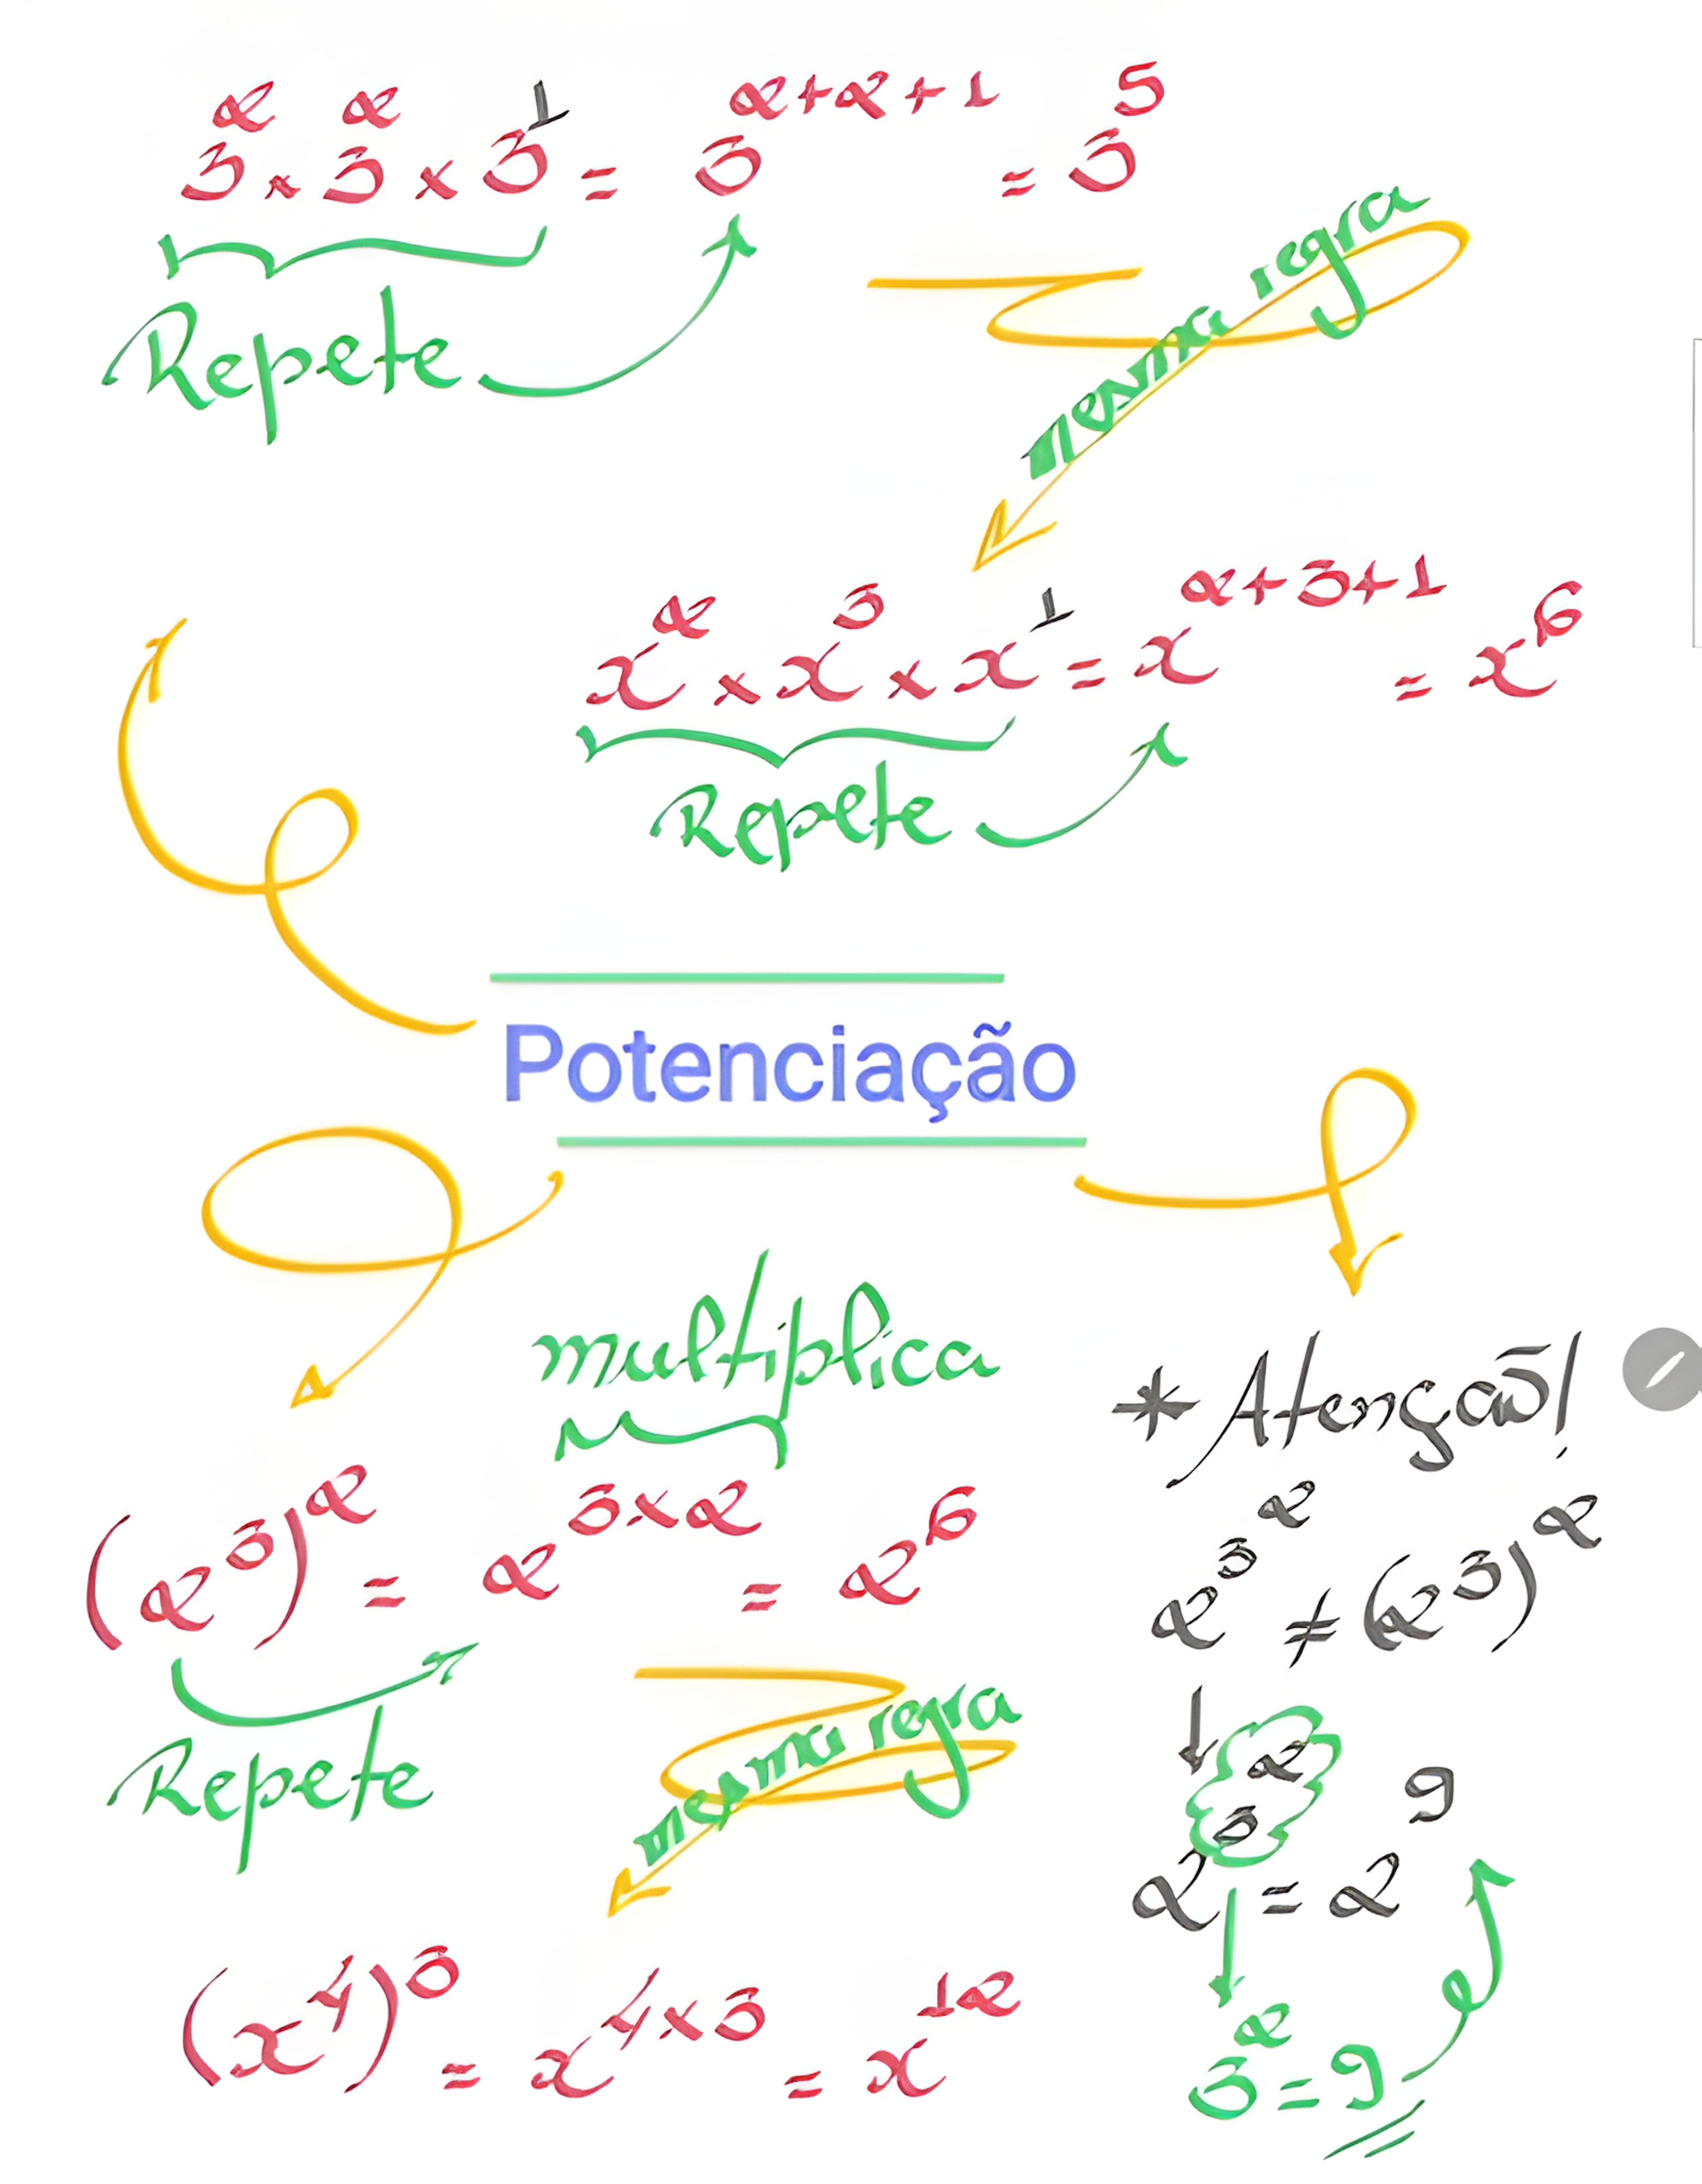 3² × 3² × 3¹ = 3²⁺²⁺¹ = 3⁵
Repete
mesma regra
x² × x³ × x¹ = x²⁺³⁺¹ = x⁶
Repete
Potenciação
multiplica
(2³)² = 2³ˣ² = 2⁶
Repete
mesma regra
(x⁴)³ = x⁴ˣ³ = x¹²
* Atenção!
2^3^2 ≠ (2³)²
2^3^2 = 2⁹
3² = 9